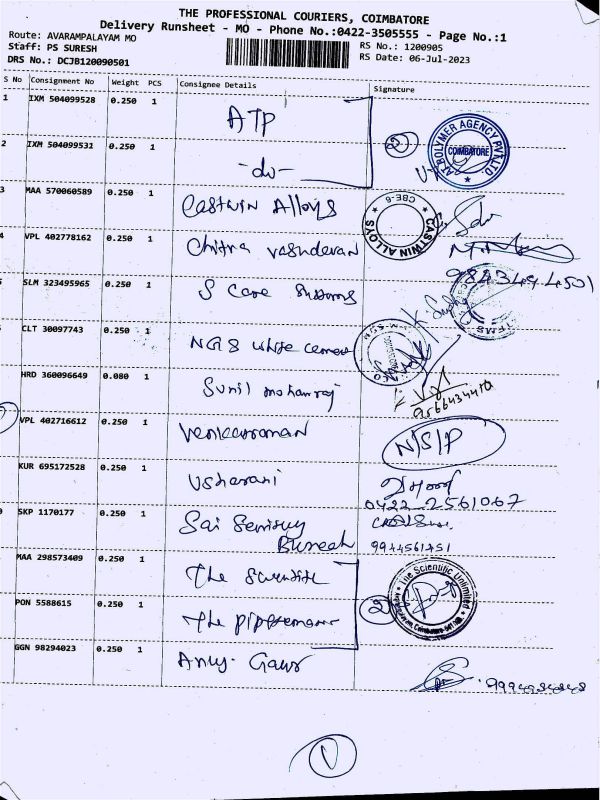 THE PROFESSIONAL COURIERS, COIMBATORE
Delivery Runsheet - MO - Phone No.:0422-3505555 - Page No.:1
Route: AVARAMPALAYAM MO
Staff: PS SURESH
DRS No.: DCJB120090501
RS No.: 1200905
RS Date: 06-Jul-2023
S No Consignment No Weight PCS Consignee Details Signature
1 IXM 504099528 0.250 1 ATP
2 IXM 504099531 0.250 1 -do- 2 COIMBATORE
3 MAA 570060589 0.250 1 Castwin Alloys CASTWIN ALLOYS CBE-6
4 VPL 402778162 0.250 1 Chitra Vasudevan
984344 4501
SLM 323495965 0.250 1 S Care
CLT 30097743 0.250 1 NGS white cement
HRD 360096649 0.080 1 Sunil mohanraj
9566434410
VPL 402716612 0.250 1 Venkatraman N/S/P
KUR 695172528 0.250 1 Usharani
0422-2561067
SKP 1170177 0.250 1 Sai
Bureah 9944561451
MAA 298573409 0.250 1 The Scientific The Scientific Unlimited
PON 5588615 0.250 1 The 2
GGN 98294023 0.250 1 Anuj. Gaur
1